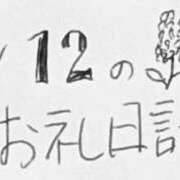 /12の
お礼日記